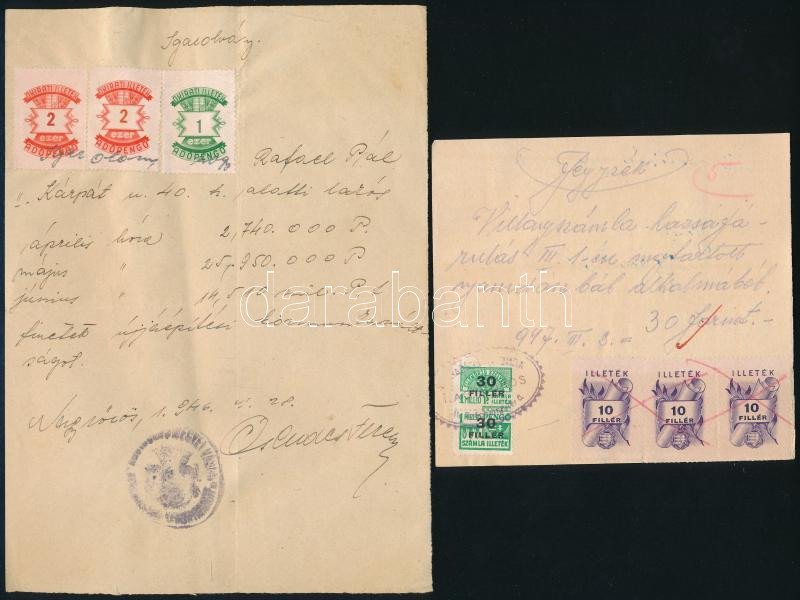 Igazolvány.
OKIRATI ILLETÉK
2
ezer
ADÓPENGŐ
OKIRATI ILLETÉK
2
ezer
ADÓPENGŐ
OKIRATI ILLETÉK
1
ezer
ADÓPENGŐ
Igazolom, Rafael Pál
Kárpát u. 40. sz. alatti lakós
április hóra 2,740.000 P.
május " 25,950.000 P
június " P.t
fizetett újjáépítési
ságot.
1.946. 28.
Csendes Ferenc
darabanth
Jegyzék
5
Villanyszámla hozzájá-
rulás III. 1-én megtartott
alkalmából.
30 forint.-
947. III. 3. =
30
FILLÉR
30
FILLÉR
SZÁMLAILLETÉK
ILLETÉK
10
FILLÉR
ILLETÉK
10
FILLÉR
ILLETÉK
10
FILLÉR